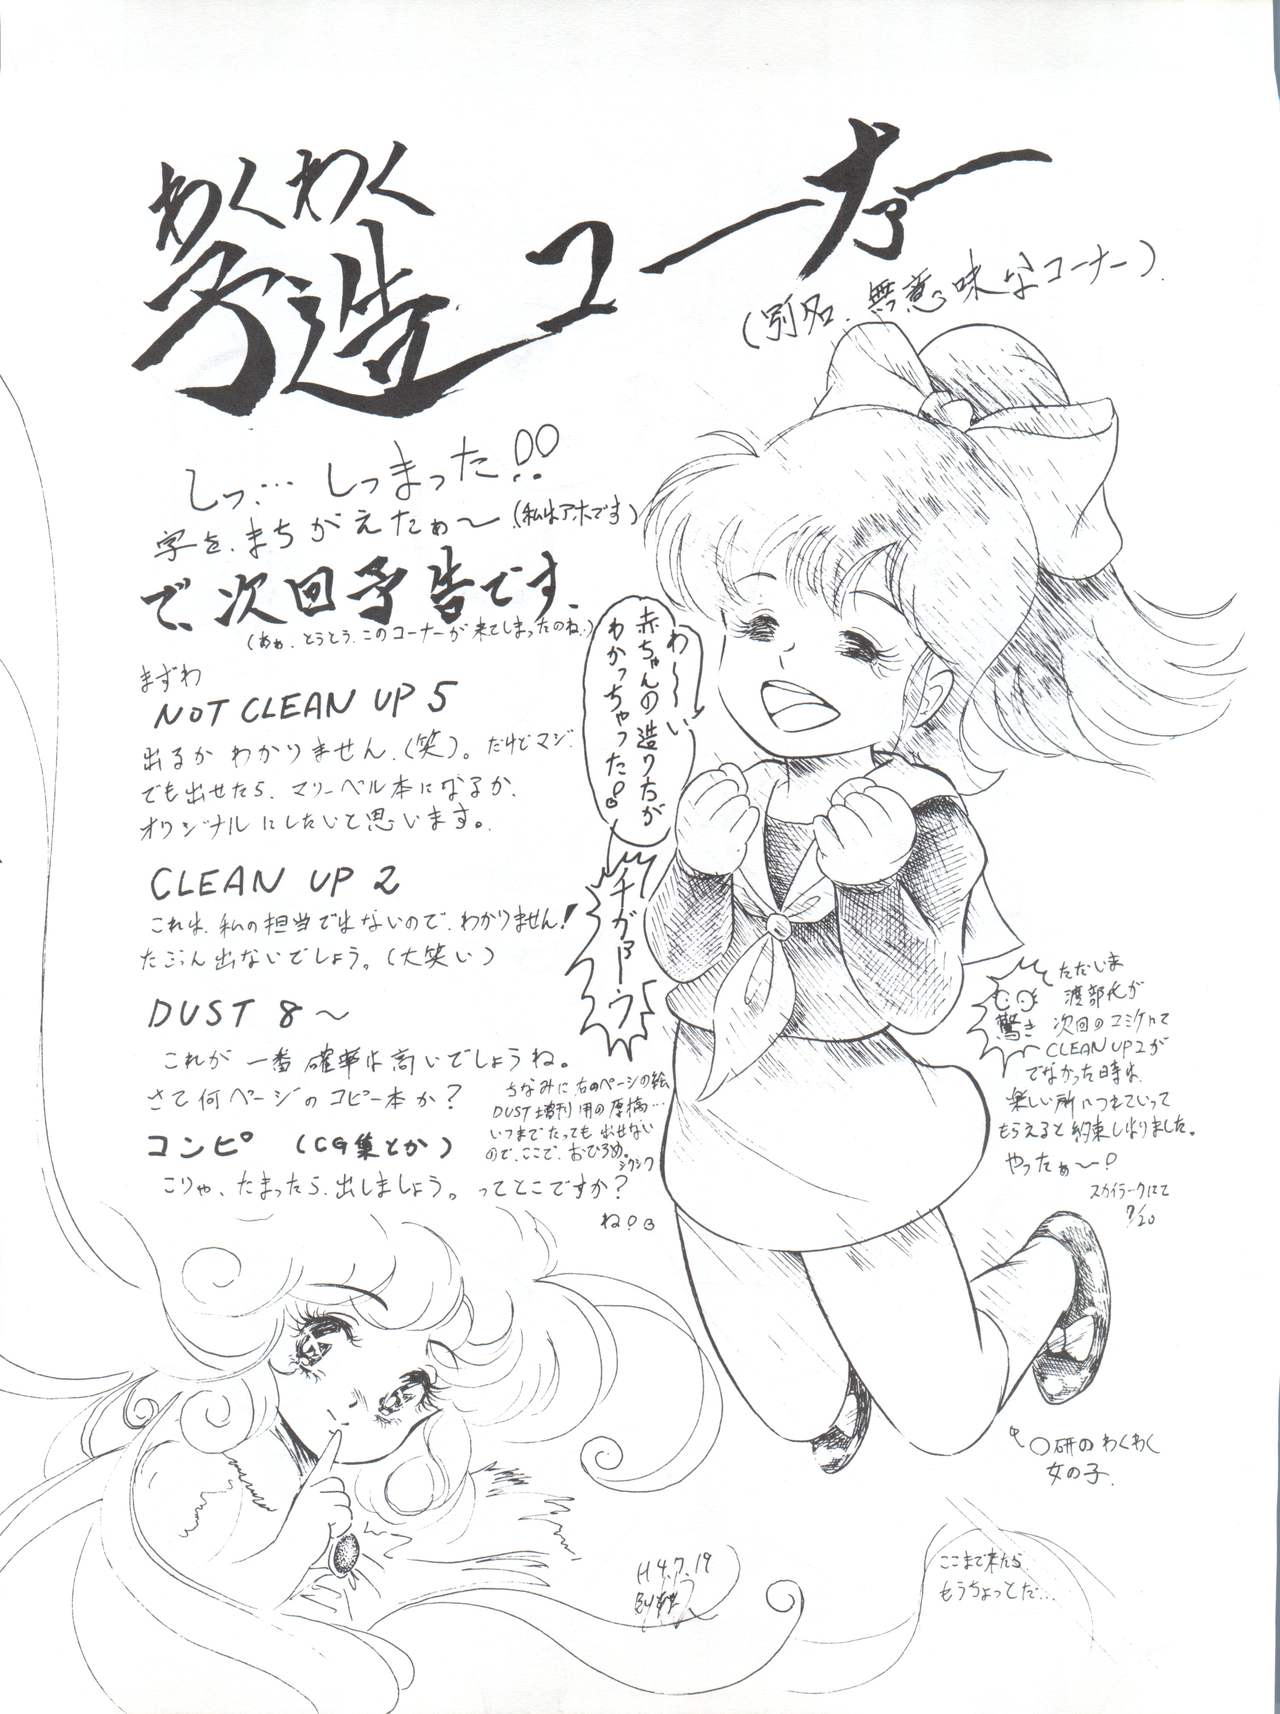 わくわく
予造コーナァー
(別名、無意味なコーナー)
しっ…しっまった!!
字を、まちがえたぁ〜(私はアホです)
で、次回予告です、
(あぁ、とうとう、このコーナーが来てしまったのね、)
まずわ
NOT CLEAN UP 5
出るかわかりません、(笑)。だけどマジ
でも出せたら、マリーベル本になるか、
オリジナルにしたいと思います。
CLEAN UP 2
これは、私の担当ではないので、わかりません!
たぶん出ないでしょう。(大笑い)
DUST 8〜
これが一番確率は高いでしょうね。
さて何ページのコピー本か?
ちなみに右のページの絵
DUST増刊用の原稿…
いつまでたっても出せない
ので、ここで、おひろめ。
シクシク
コンピ (CG集とか)
こりゃ、たまったら、出しましょう。ってとこですか?
ね!
わ〜〜い
赤ちゃんの造り方が
わかっちゃった!
チがァーウ
ただいま
渡部氏が
驚き
次回のコミケにて
CLEAN UP 2が
でなかった時は、
楽しい所につれていって
もらえると約束しました。
やったぁ〜!
スカイラークにて
7/20
〇研のわくわく
女の子、
H4.7.19
ここまで来たら
もうちょっとだ…